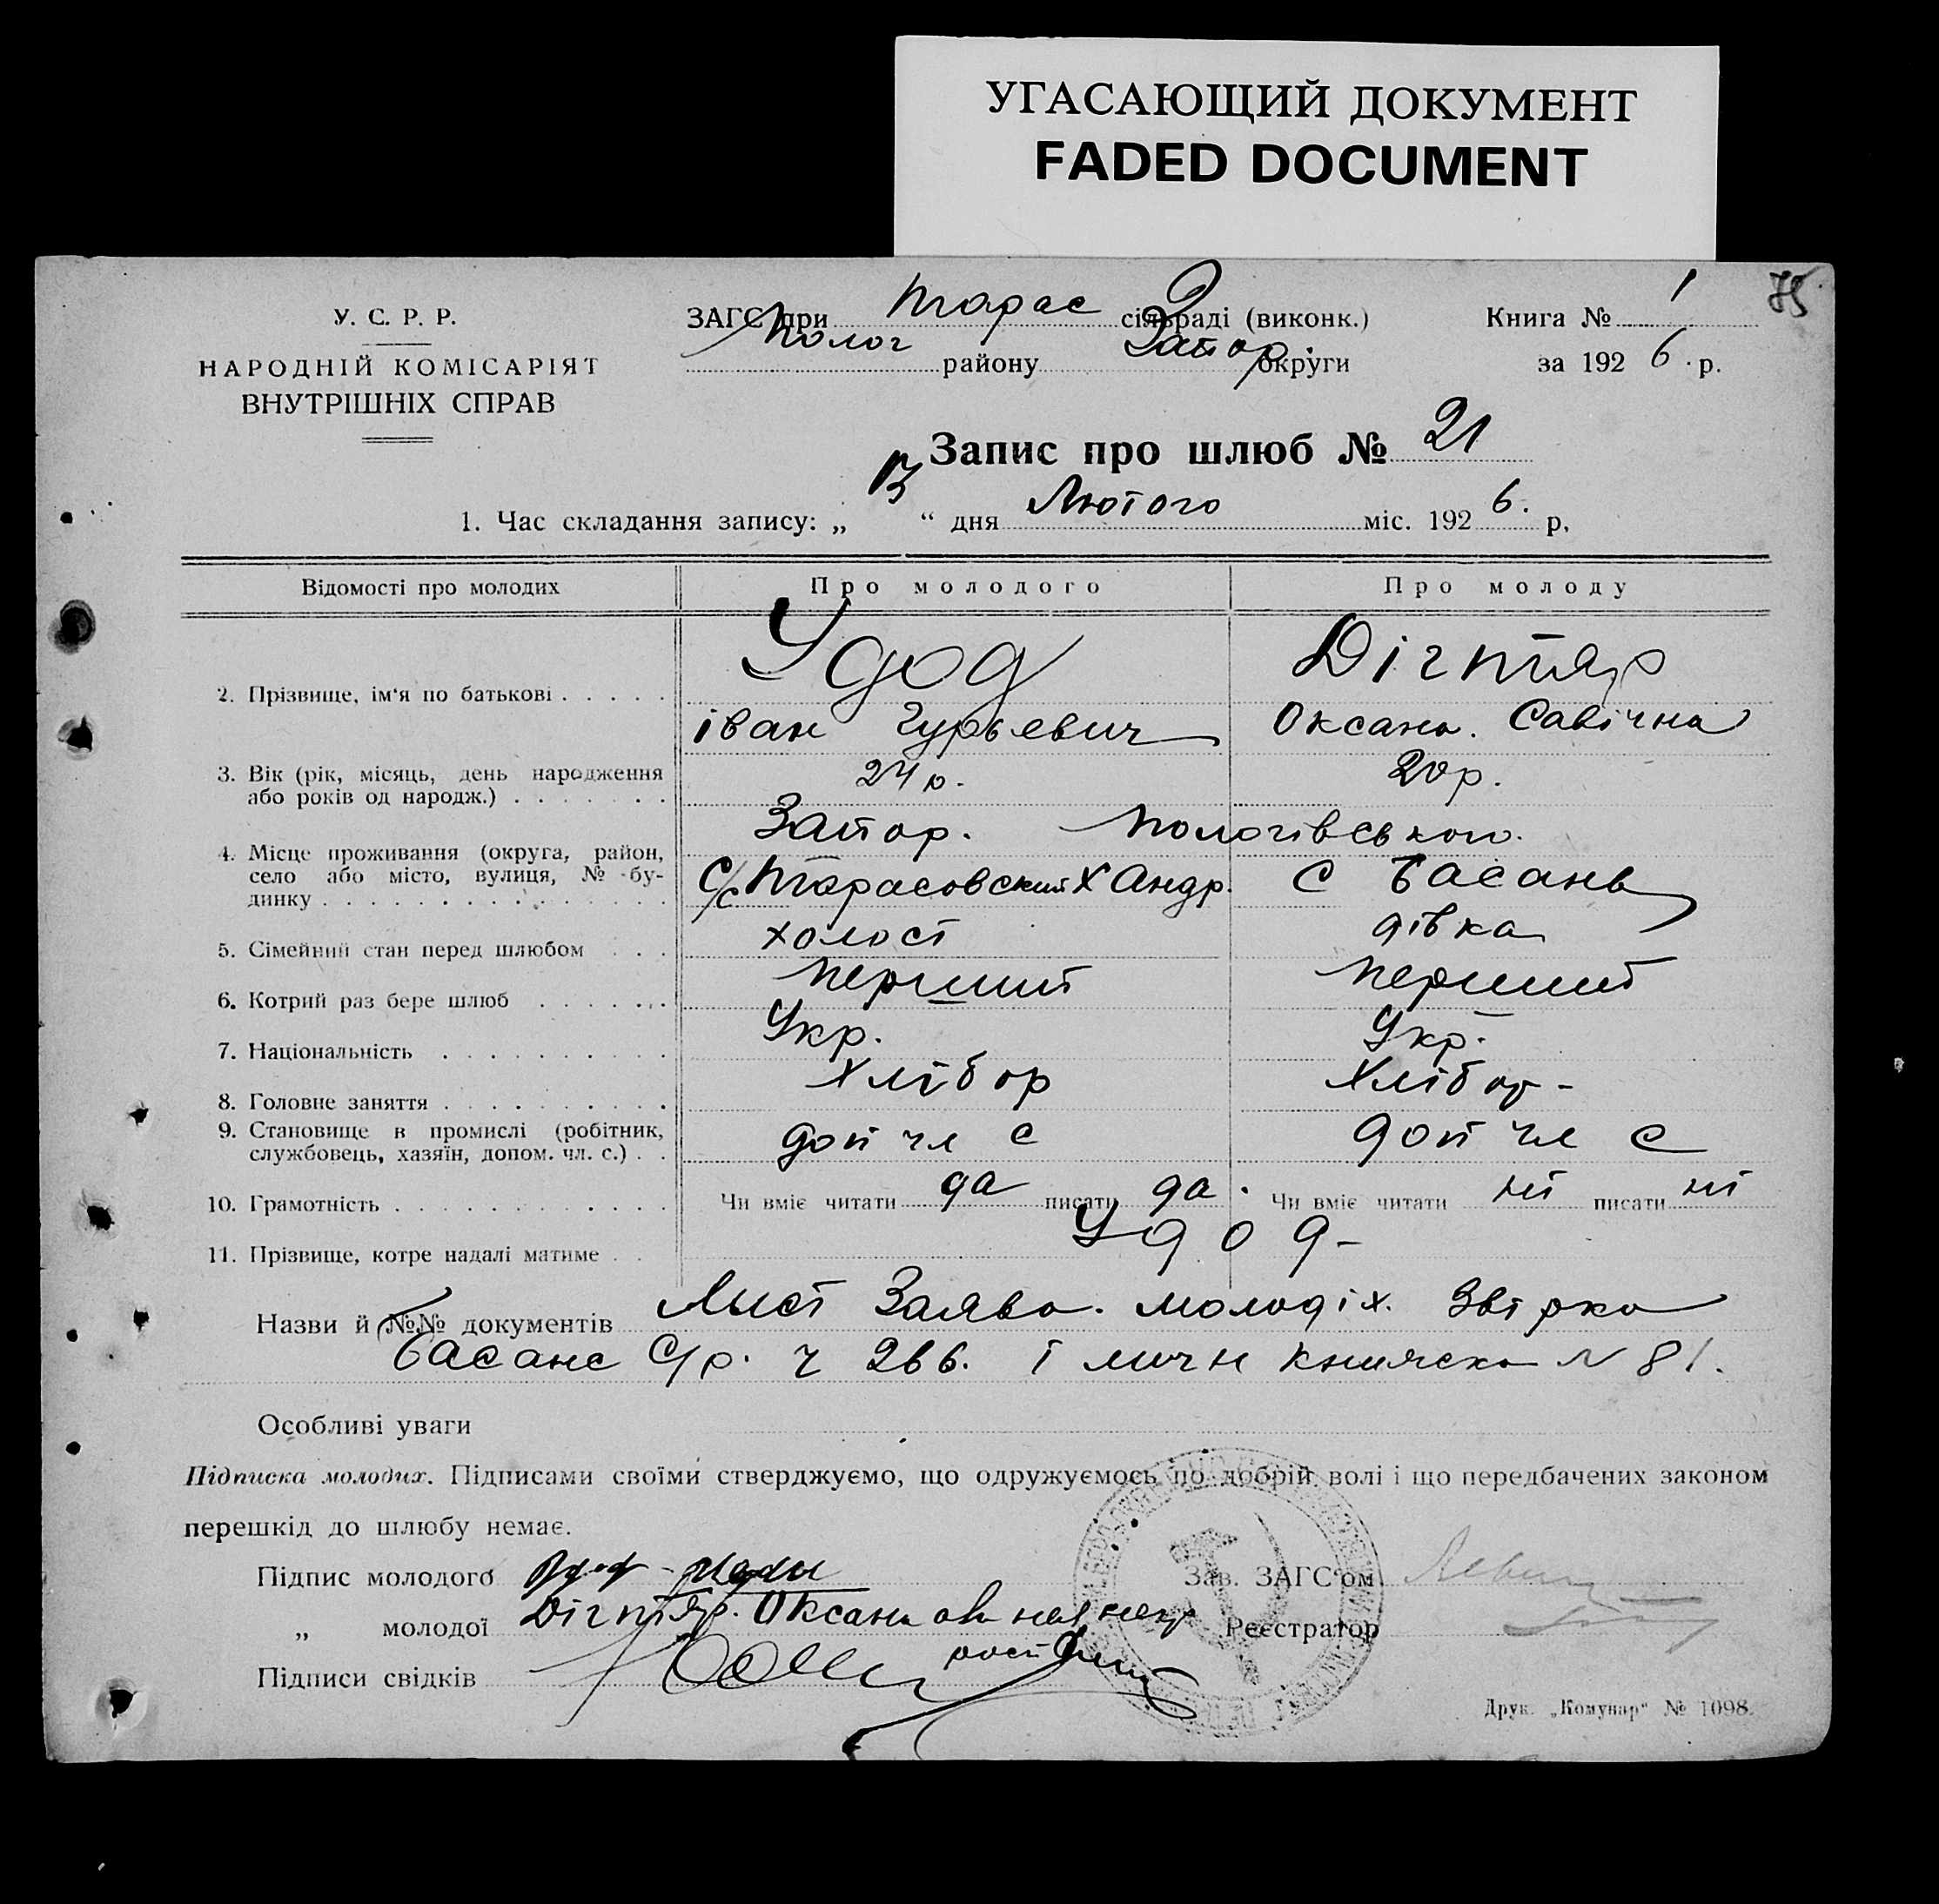 УГАСАЮЩИЙ ДОКУМЕНТ
FADED DOCUMENT
75
У. С. Р. Р.
НАРОДНІЙ КОМІСАРІЯТ
ВНУТРІШНІХ СПРАВ
ЗАГС при Тарас сільраді (виконк.)
Полог району Запор. округи
Книга № 1
за 1926 р.
Запис про шлюб № 21
1. Час складання запису: „ 13 “ дня Лютого міс. 1926. р.
Відомості про молодих Про молодого Про молоду
2. Прізвище, ім'я по батькові Удод Дігтяр
іван Гурьевич Оксана. Савічна
3. Вік (рік, місяць, день народження або років од народж.) 24 р. 20 р.
4. Місце проживання (округа, район, село або місто, вулиця, № будинку Запор. Пологівського.
С/с Тарасовский Х Андр. С Басань
5. Сімейний стан перед шлюбом холост дівка
6. Котрий раз бере шлюб перший перший
7. Національність Укр. Укр.
8. Головне заняття Хлібор Хлібор-
9. Становище в промислі (робітник, службовець, хазяїн, допом. чл. с.) доп чл с доп чл с
10. Грамотність Чи вміє читати да писати да. Чи вміє читати ні писати ні
11. Прізвище, котре надалі матиме Удод-
Назви й №№ документів Лист Заява. молодіх. Звірка
Басанс С/р. ч 266. і личн книжска № 81.
Особливі уваги
Підписка молодих. Підписами своїми стверджуємо, що одружуємось по добрій волі і що передбачених законом
перешкід до шлюбу немає.
Підпис молодого Зав. ЗАГС'ом
„ молодої Дігтяр. Оксана Реєстратор
Підписи свідків
Друк. „Комунар“ № 1098.